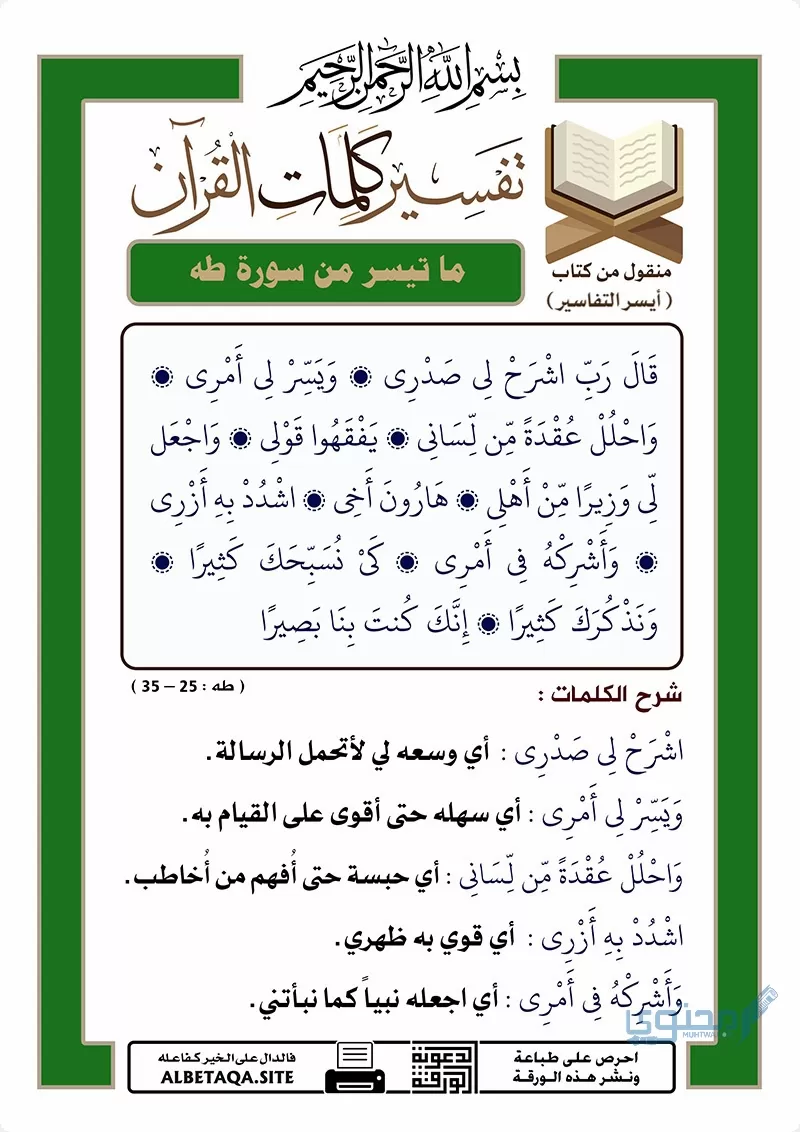 بِسْمِ اللَّهِ الرَّحْمَٰنِ الرَّحِيمِ
تَفْسِير كَلِمَاتِ القُرْآن
منقول من كتاب
( أيسر التفاسير )
ما تيسر من سورة طه
قَالَ رَبِّ اشْرَحْ لِى صَدْرِى ۞ وَيَسِّرْ لِى أَمْرِى ۞
وَاحْلُلْ عُقْدَةً مِّن لِّسَانِى ۞ يَفْقَهُوا قَوْلِى ۞ وَاجْعَل
لِّى وَزِيرًا مِّنْ أَهْلِى ۞ هَارُونَ أَخِى ۞ اشْدُدْ بِهِ أَزْرِى
۞ وَأَشْرِكْهُ فِى أَمْرِى ۞ كَىْ نُسَبِّحَكَ كَثِيرًا ۞
وَنَذْكُرَكَ كَثِيرًا ۞ إِنَّكَ كُنتَ بِنَا بَصِيرًا
( طه : 25 – 35 )
شرح الكلمات :
اشْرَحْ لِى صَدْرِى : أي وسعه لي لأتحمل الرسالة.
وَيَسِّرْ لِى أَمْرِى : أي سهله حتى أقوى على القيام به.
وَاحْلُلْ عُقْدَةً مِّن لِّسَانِى : أي حبسة حتى أُفهم من أُخاطب.
اشْدُدْ بِهِ أَزْرِى : أي قوي به ظهري.
وَأَشْرِكْهُ فِى أَمْرِى : أي اجعله نبياً كما نبأتني.
محتوى
MUHTWA
احرص على طباعة
ونشر هذه الورقة
الدعوية
الورقة
فالدال على الخير كفاعله
ALBETAQA.SITE